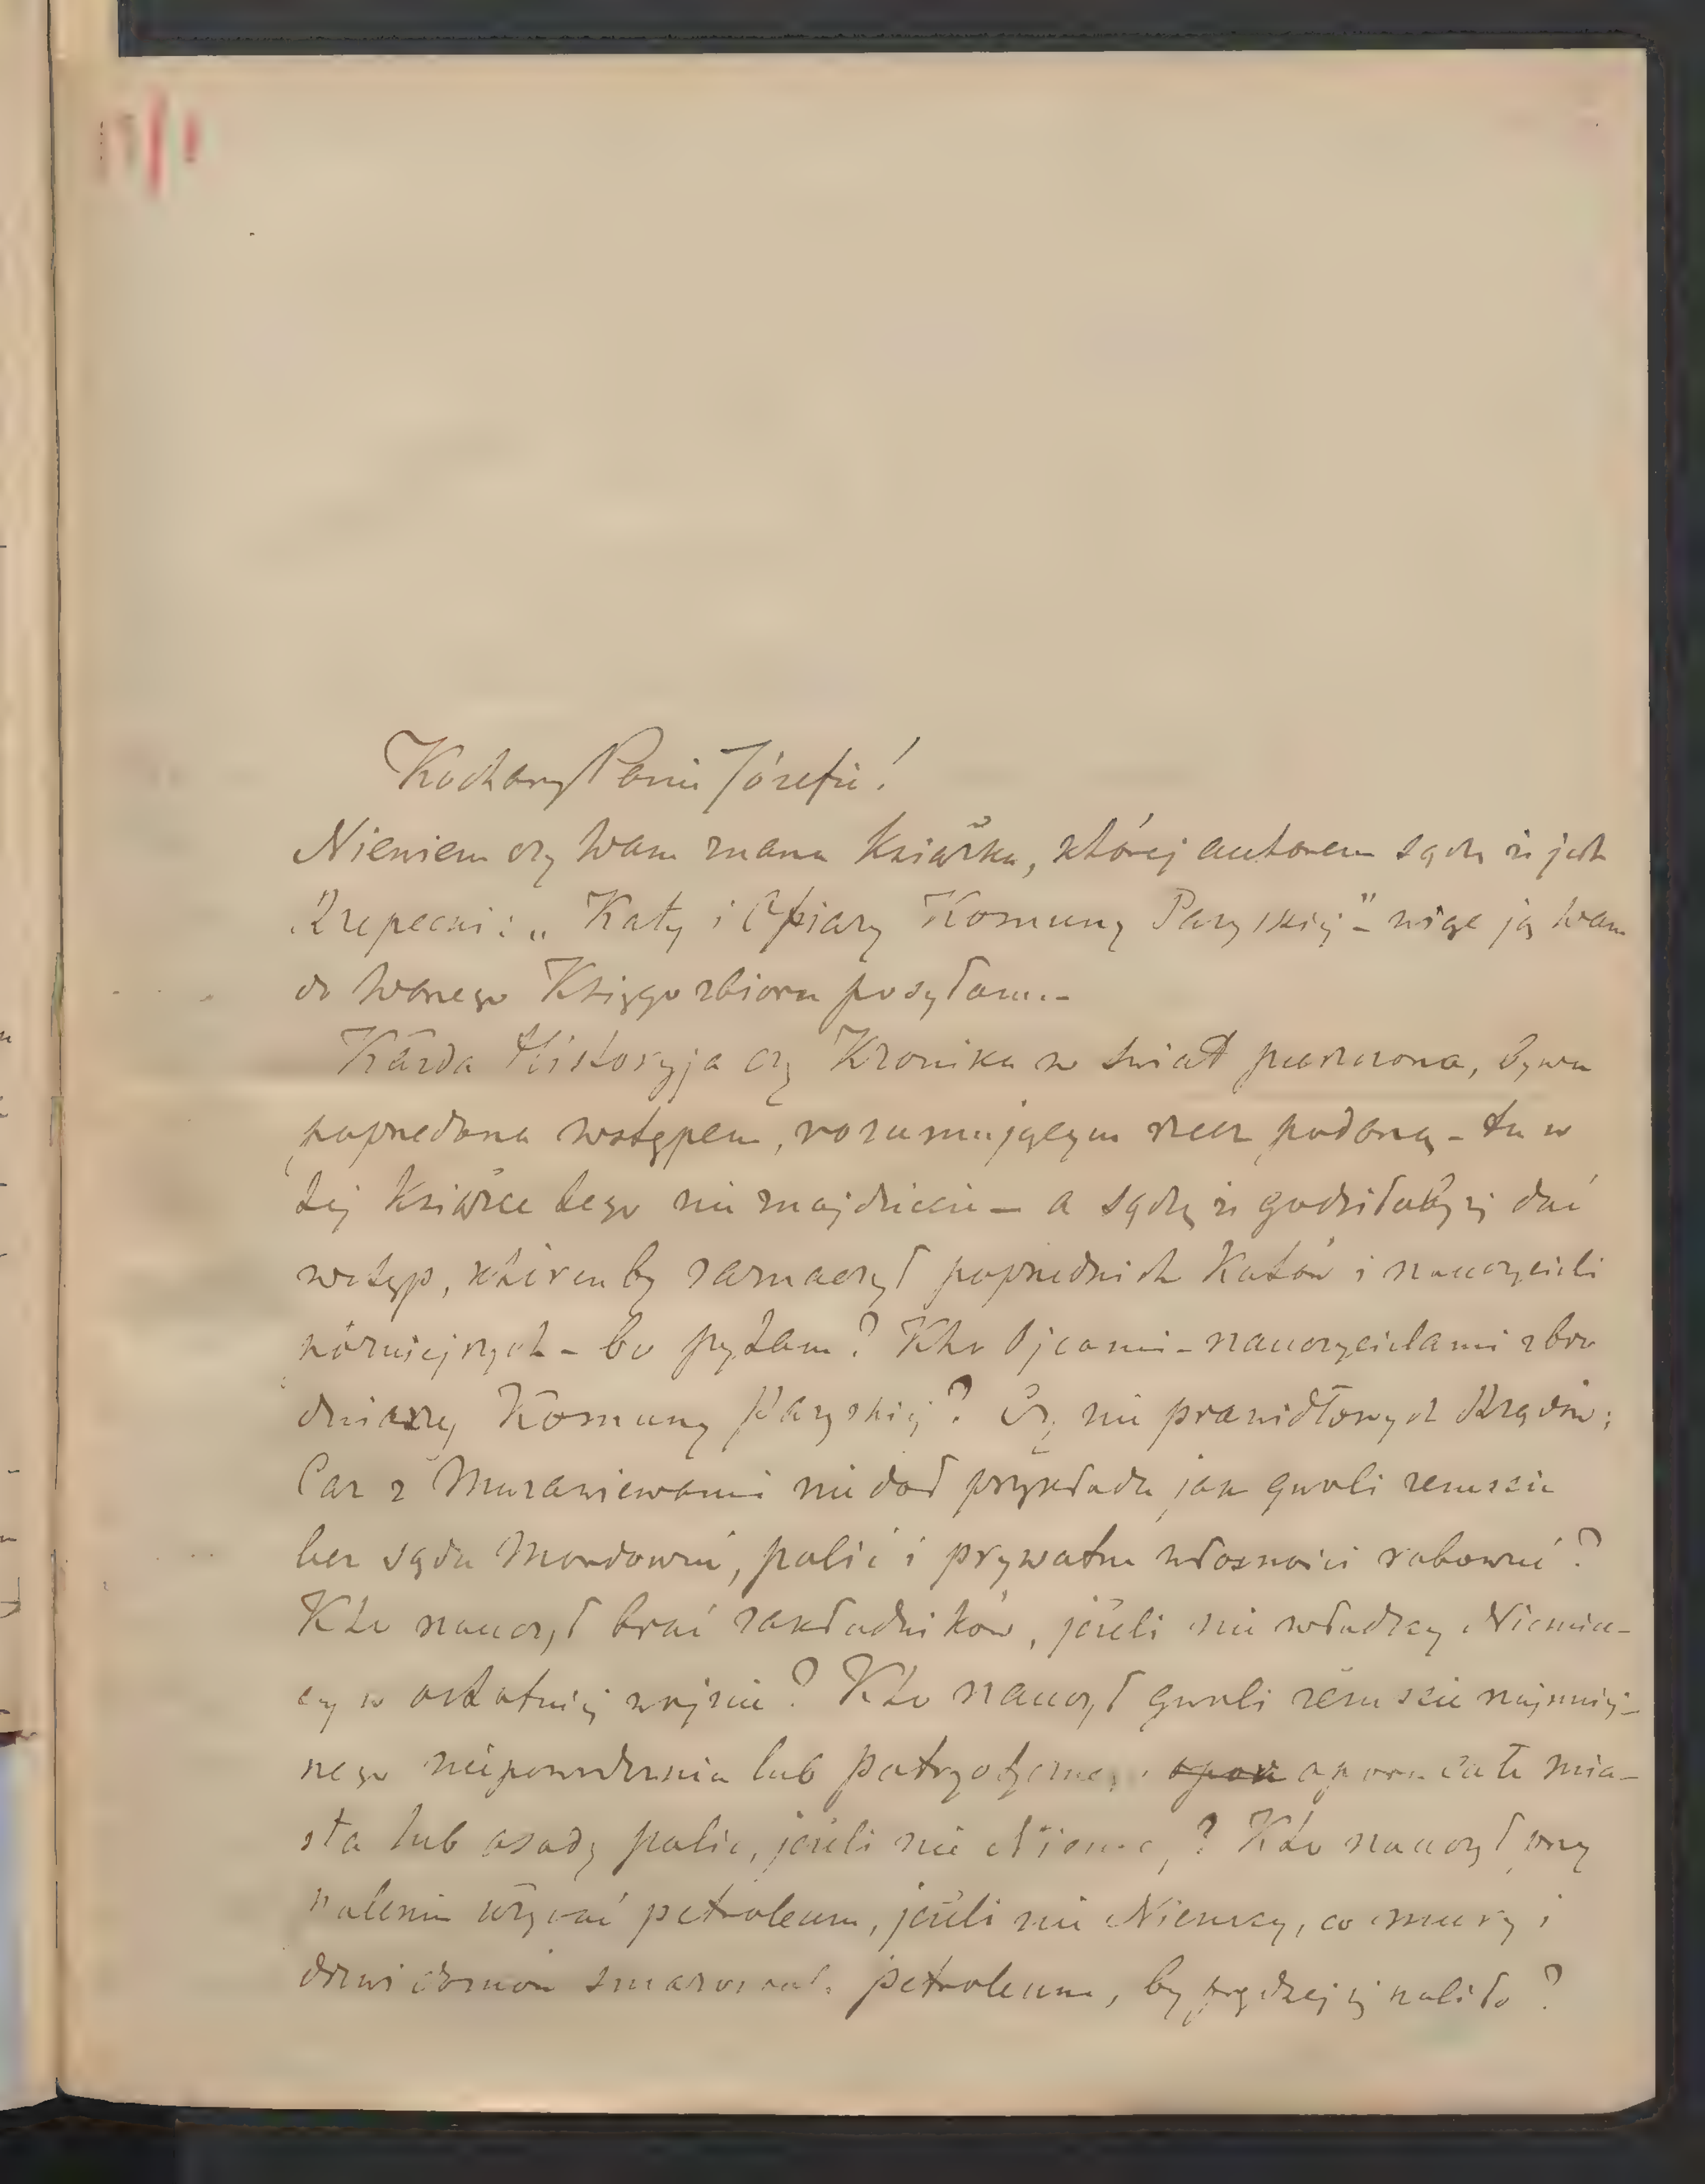 Kochany Panie Józefie!
Niewiem czy Wam znana Książka, której autorem sądzę że jest
Rzepecki: „Katy i Ofiary Komuny Paryskiej" – więc ją Wam
do Waszego Księgozbioru posyłam.–
Każda Historyja czy Kronika w świat puszczona, bywa
poprzedzona wstępem, rozumującym rzecz podaną – tu w
tej Książce tego nie znajdziecie – a sądzę że godziłoby się dać
wstęp, któren by zaznaczył poprzednich Katów i nauczycieli
późniejszych – bo pytam? Kto Ojcami – nauczycielami zbro
dniarzy Komuny Paryskiej? Czy nie prawidłowych Rządów;
Car z Murawiewami nie dał przykładu jak gwoli zemście
bez sądu Mordować, palić i prywatne własności rabować?
Kto nauczył brać zakładników, jeżeli nie władzcy Niemie-
cy w ostatniej wojnie? Kto nauczył gwoli zemście najmniej-
nego niepowodzenia lub patryotycznego oporu całe mia-
sta lub osady palić, jeżeli nie Niemcy? Kto nauczył przy
paleniu używać petroleum, jeżeli nie Niemcy, co mury i
drzwi domów smarowali petroleum, by prędzej się paliło?